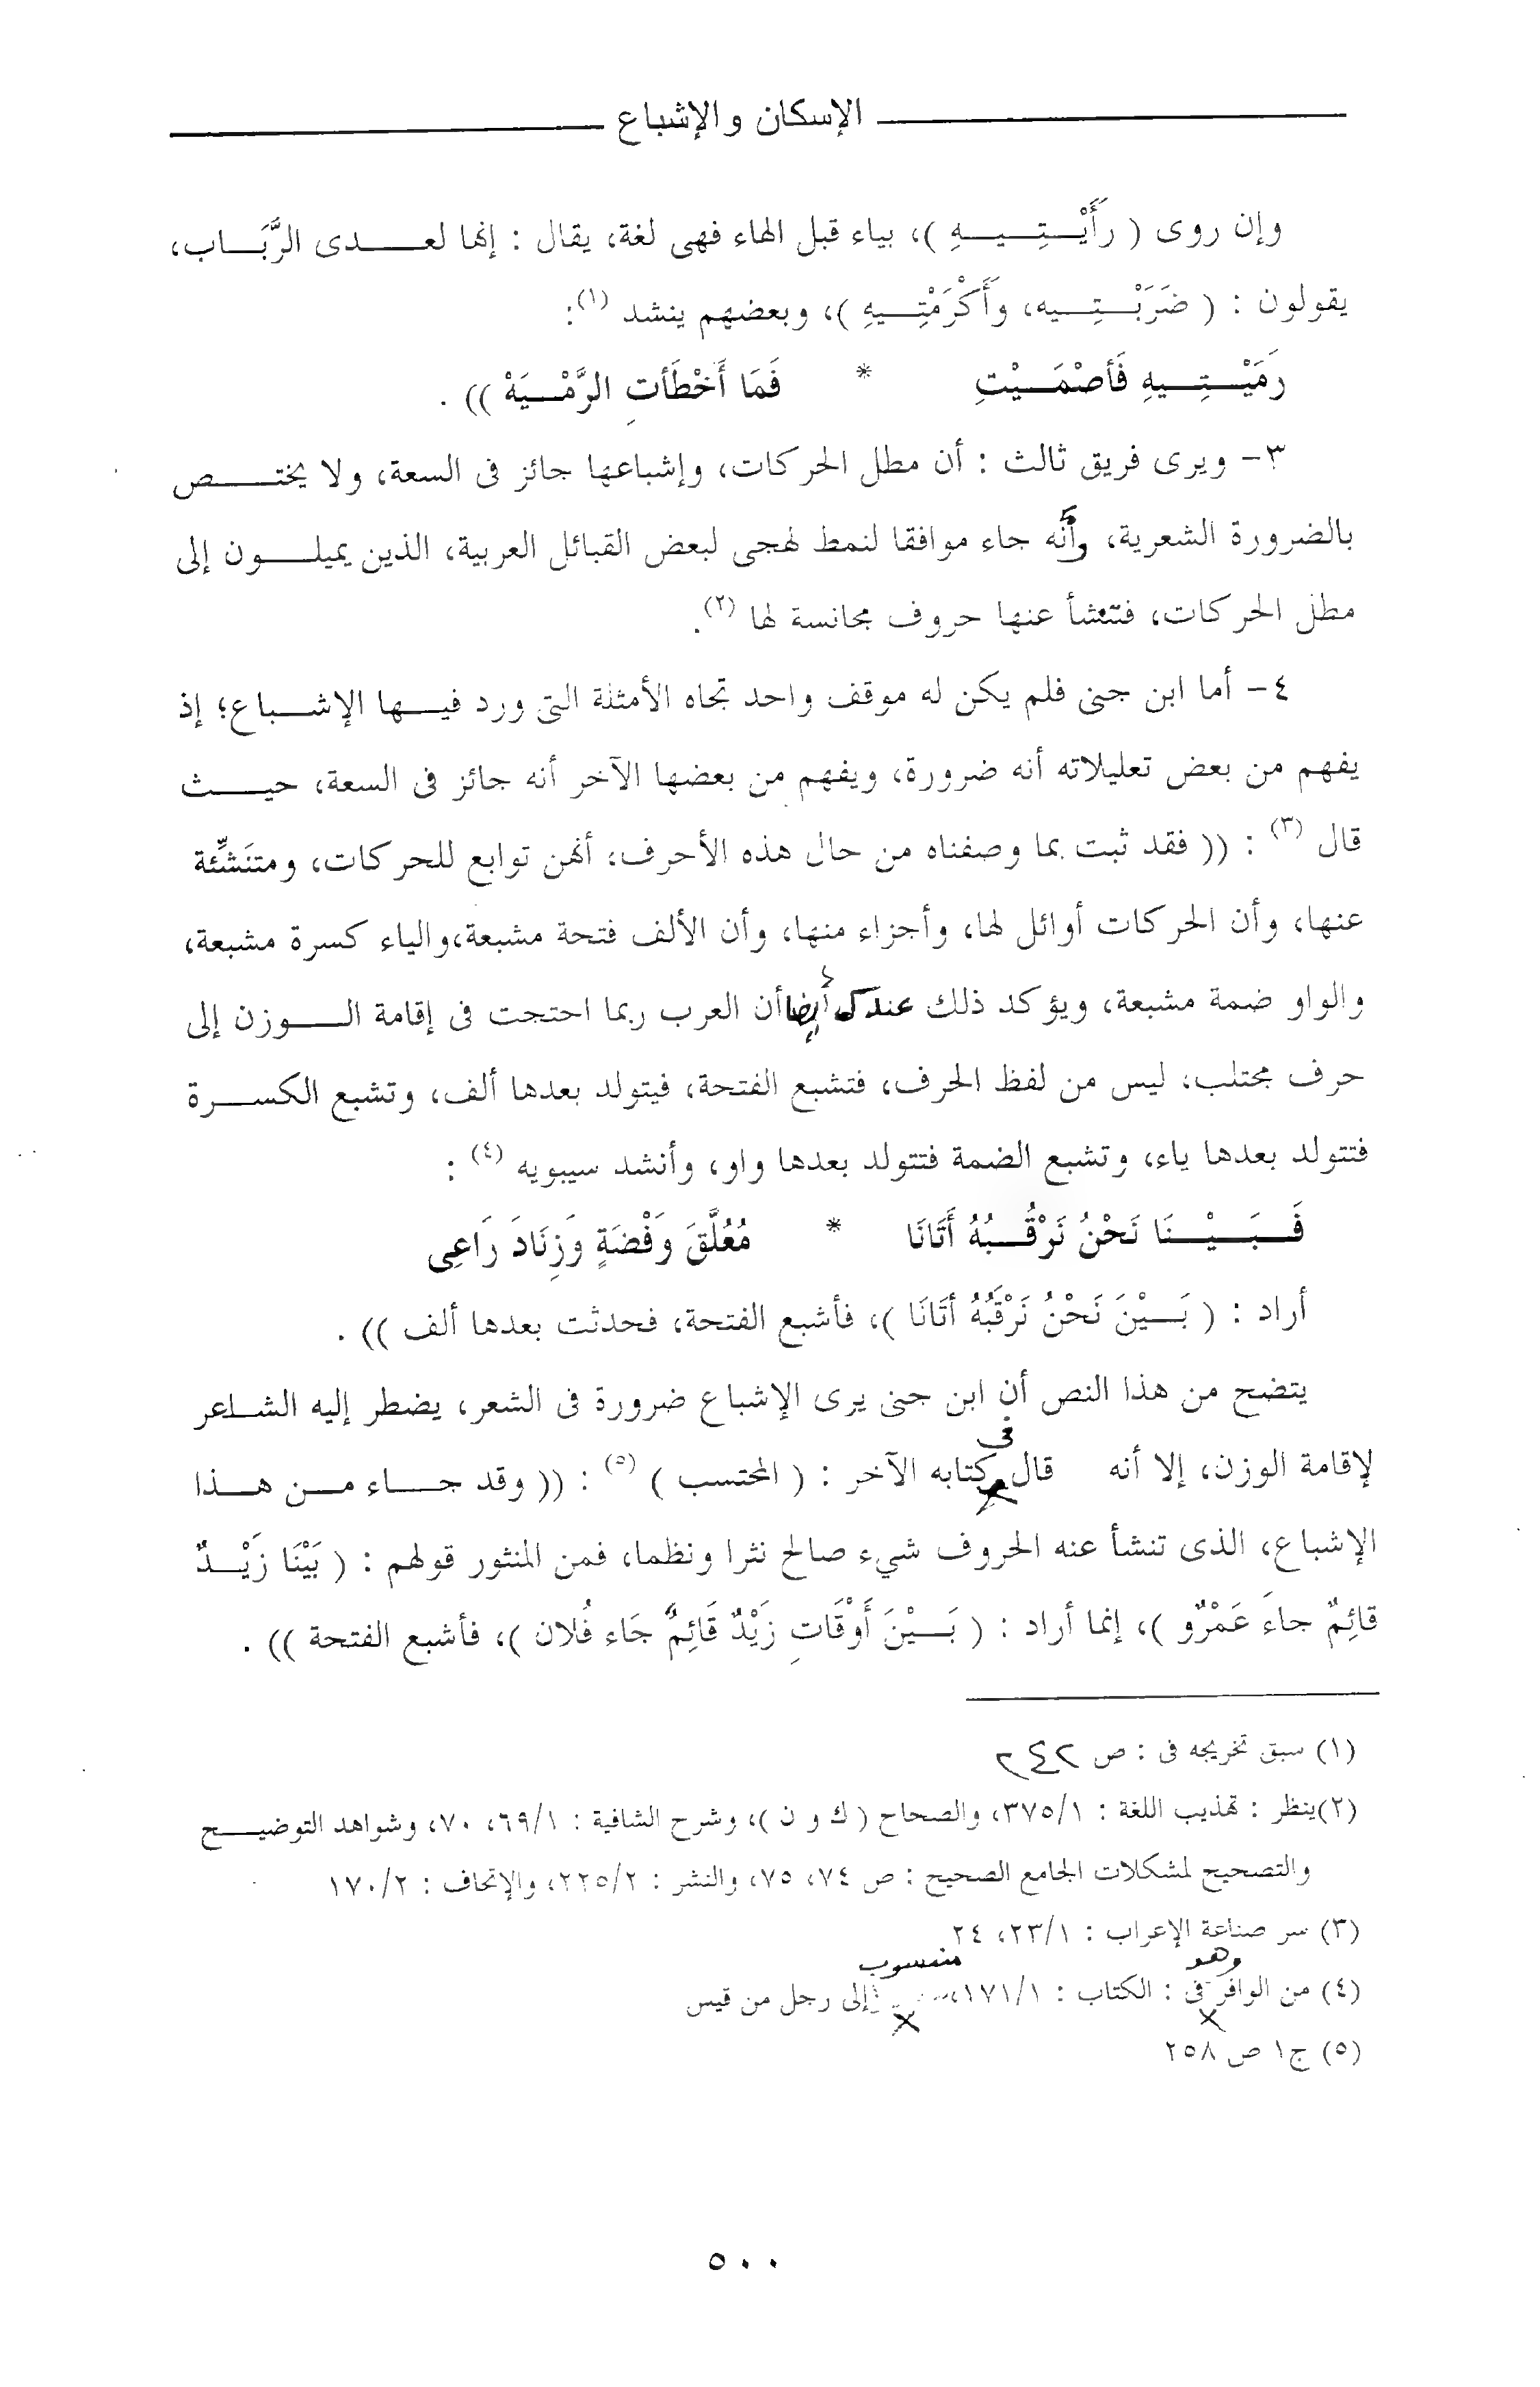 الإسكان والإشباع
وإن روى ( رَأَيْتِيهِ )، بياء قبل الهاء فهى لغة، يقال : إنها لعدى الرَّبَاب،
يقولون : ( ضَرَبْتِيه، وَأَكْرَمْتِيهِ )، وبعضهم ينشد (١):
رَمَيْتِيهِ فَأصْمَيْتِ * فَمَا أَخْطَأتِ الرَّمْيَهْ )) .
٣- ويرى فريق ثالث : أن مطل الحركات، وإشباعها جائز فى السعة، ولا يختص
بالضرورة الشعرية، وأنه جاء موافقا لنمط لهجى لبعض القبائل العربية، الذين يميلون إلى
مطل الحركات، فتنشأ عنها حروف مجانسة لها (٢).
٤- أما ابن جنى فلم يكن له موقف واحد تجاه الأمثلة التى ورد فيها الإشباع؛ إذ
يفهم من بعض تعليلاته أنه ضرورة، ويفهم من بعضها الآخر أنه جائز فى السعة، حيث
قال (٣) : (( فقد ثبت بما وصفناه من حال هذه الأحرف، أنهن توابع للحركات، ومتنَشِّئة
عنها، وأن الحركات أوائل لها، وأجزاء منها، وأن الألف فتحة مشبعة،والياء كسرة مشبعة،
والواو ضمة مشبعة، ويؤكد ذلك عندك أيضا أن العرب ربما احتجت فى إقامة الوزن إلى
حرف مجتلب، ليس من لفظ الحرف، فتشبع الفتحة، فيتولد بعدها ألف، وتشبع الكسرة
فتتولد بعدها ياء، وتشبع الضمة فتتولد بعدها واو، وأنشد سيبويه (٤) :
فَبَيْنَا نَحْنُ نَرْقُبُهُ أَتَانَا * مُعَلَّقَ وَفْضَةٍ وَزِنَادَ رَاعِى
أراد : ( بَيْنَ نَحْنُ نَرْقُبُهُ أتَانَا )، فأشبع الفتحة، فحدثت بعدها ألف )) .
يتضح من هذا النص أن ابن جنى يرى الإشباع ضرورة فى الشعر، يضطر إليه الشاعر
لإقامة الوزن، إلا أنه قال فى كتابه الآخر : ( المحتسب ) (٥) : (( وقد جاء من هذا
الإشباع، الذى تنشأ عنه الحروف شيء صالح نثرا ونظما، فمن المنثور قولهم : ( بَيْنَا زَيْدٌ
قائِمٌ جاءَ عَمْرٌو )، إنما أراد : ( بَيْنَ أَوْقَاتِ زَيْدٌ قَائِمٌ جَاء فُلان )، فأشبع الفتحة )) .
(١) سبق تخريجه فى : ص ٢٤٢
(٢)ينظر : تهذيب اللغة : ٣٧٥/١، والصحاح ( ك و ن )، وشرح الشافية : ٦٩/١، ٧٠، وشواهد التوضيح
والتصحيح لمشكلات الجامع الصحيح : ص ٧٤، ٧٥، والنشر : ٢٢٥/٢، والإتحاف : ١٧٠/٢
(٣) سر صناعة الإعراب : ٢٣/١، ٢٤
(٤) من الوافر وهو فى : الكتاب : ١٧١/١، منسوب إلى رجل من قيس
(٥) ج١ ص ٢٥٨
٥٠٠